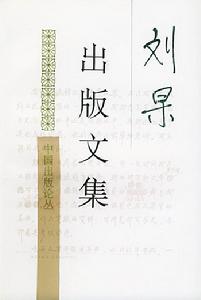 刘杲
出版文集
中国出版论丛